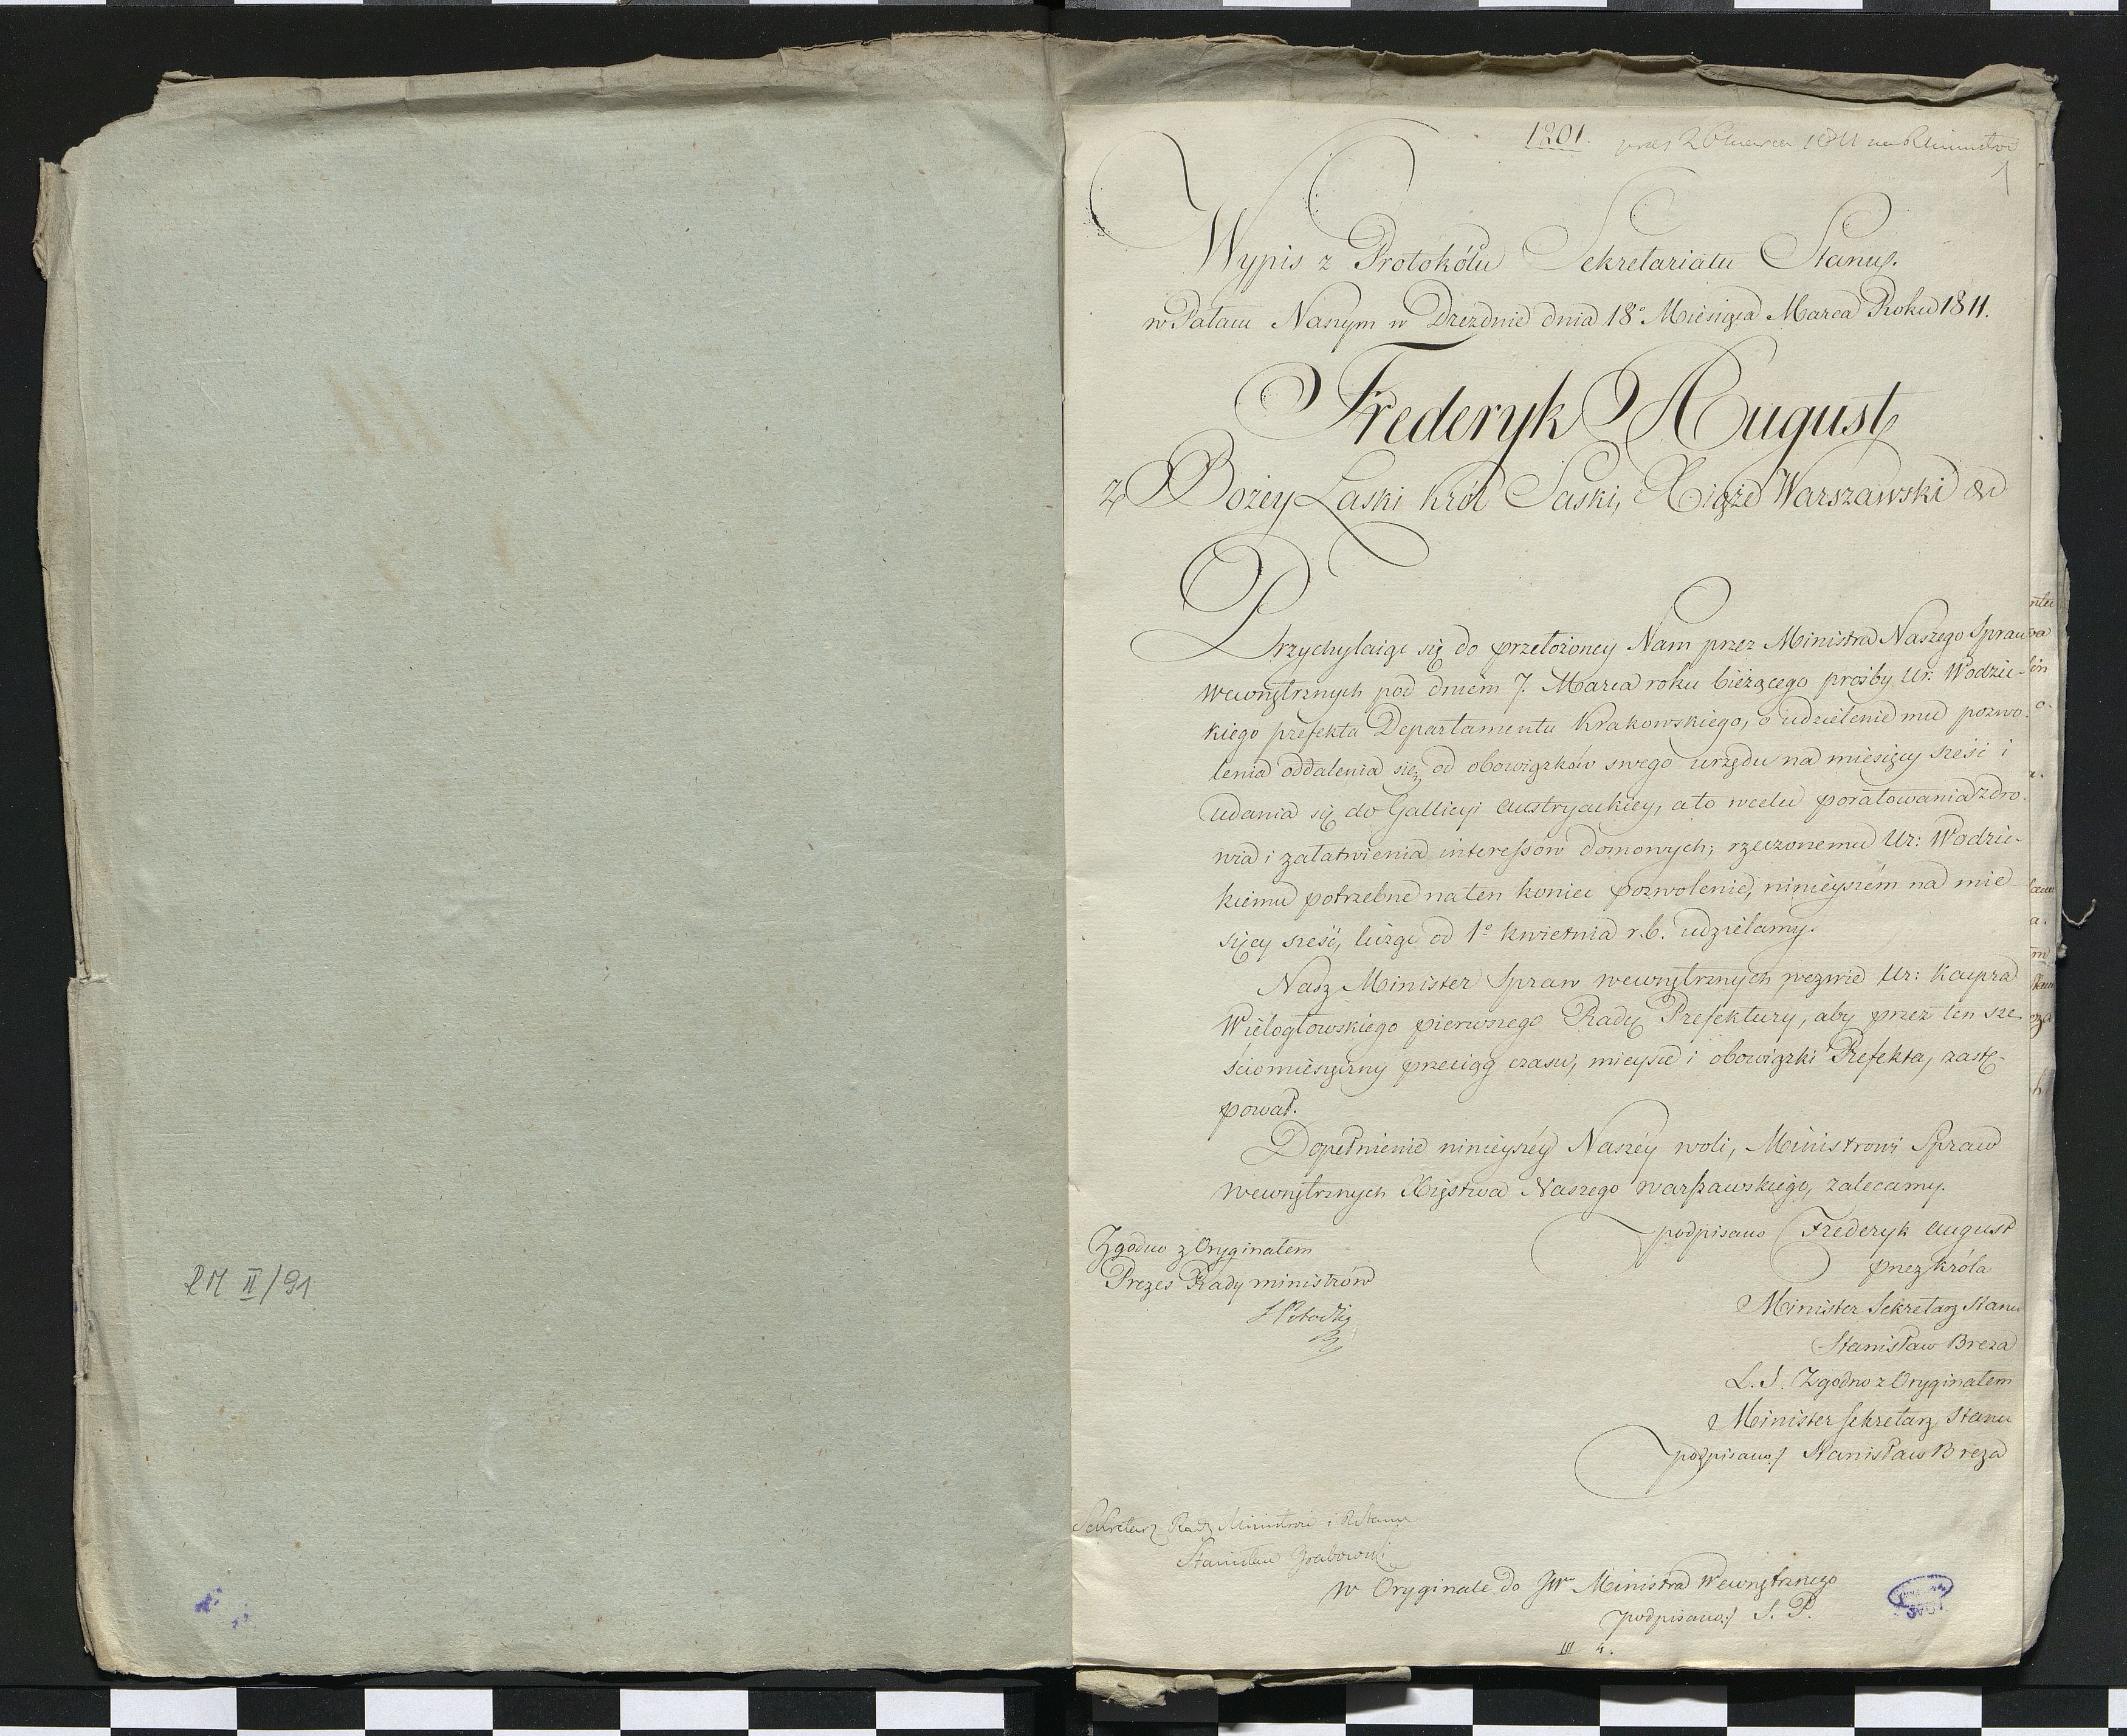 RM II/91
1201. 26 marca 1811 na R. Ministrów
1
Wypis z Protokółu Sekretariatu Stanu.
w Pałacu Naszym w Dreźdnie dnia 18º Miesiąca Marca Roku 1811.
Frederyk August
z Bożey Łaski Król Saski, Xiąże Warszawski &c
Przychylaiąc się do przełożoney Nam przez Ministra Naszego Spraw
wewnętrznych pod dniem 7. Marca roku bieżącego prośby Ur: Wodzic-
kiego prefekta Departamentu Krakowskiego, o udzielenie mu pozwo-
lenia oddalenia się od obowiązków swego urzędu na miesięcy sześć i
udania się do Gallicyi austryackiey, a to w celu poratowania zdro-
wia i załatwienia interessów domowych; rzeczonemu Ur: Wodzic-
kiemu potrzebne na ten koniec pozwolenie, ninieyszém na mie
sięcy sześć, licząc od 1º kwietnia r.b. udzielamy.
Nasz Minister Spraw wewnętrznych wezwie Ur: Kacpra
Wielogłowskiego pierwszego Radcę Prefektury, aby przez ten sze
ściomiesięczny przeciąg czasu, mieysce i obowiązki Prefekta, zastę-
pował.
Dopełnienie ninieyszéy Naszéy woli, Ministrowi Spraw
wewnętrznych Xięstwa Naszego warszawskiego, zalecamy.
podpisano Frederyk August
przez Króla
Minister Sekretarz Stanu
Stanisław Breza
L.S. Zgodno z Oryginałem
Minister Sekretarz Stanu
podpisano/ Stanisław Breza
Zgodno z Oryginałem
Prezes Rady ministrów
S Potocki
Sekretarz Rady Ministrów i R. Stanu
Stanisław Grabowski
w Oryginale do JW Ministra Wewnętrznego
podpisano/ S. P.
III 4.